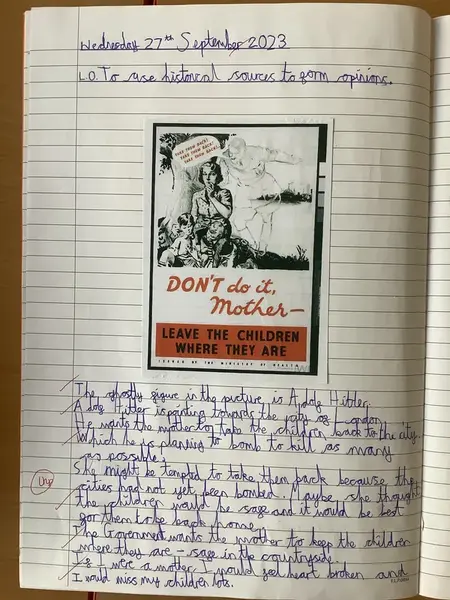 Wednesday 27th September 2023
L.O. To use historical sources to form opinions.
TAKE THEM BACK!
TAKE THEM BACK!
TAKE THEM BACK!
DON'T do it,
Mother—
LEAVE THE CHILDREN
WHERE THEY ARE
ISSUED BY THE MINISTRY OF HEALTH
The ghostly figure in the picture is Adolf Hitler.
Adolf Hitler is pointing towards the city of London.
He wants the mother to take the children back to the city.
Which he is planning to bomb to kill as many
as possible.
She might be tempted to take them back because the
cities had not yet been bombed. Maybe she thought
the children would be safe and it would be best
for them to be back home.
The Government wants the mother to keep the children
where they are - safe in the countryside.
If I were a mother I would feel heart broken and
I would miss my children lots.